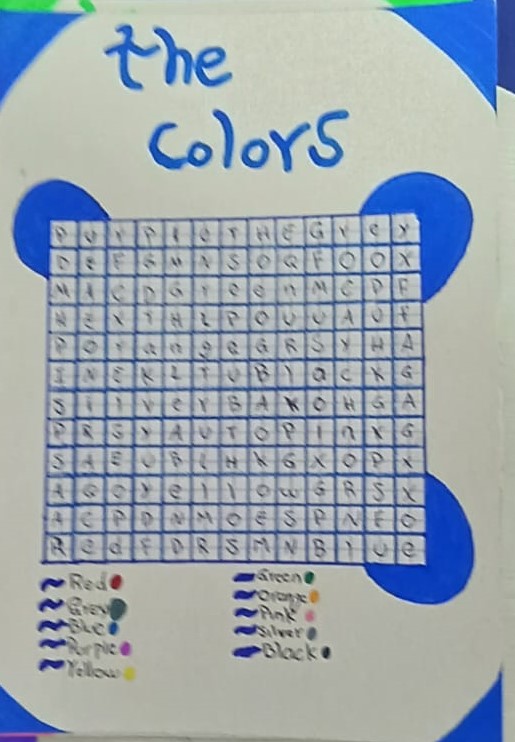 the
colors
P u r p l e T H E G r e y
D E F G M N S O Q F O O X
M A C D G r e e n M C D F
H E X T H L P O U U A U F
P O r a n g e G R S Y H A
I N E K L T U B l a c k G
S i l v e r B A K O H G A
P R S Y A U T O P I n k G
S A E U B L H K G X O P X
A G O Y e l l o w G R S X
A C P D N M O E S P N E O
R e d F D R S M N B l u e
Red
Grey
Blue
Purple
Yellow
Green
Orange
Pink
Silver
Black